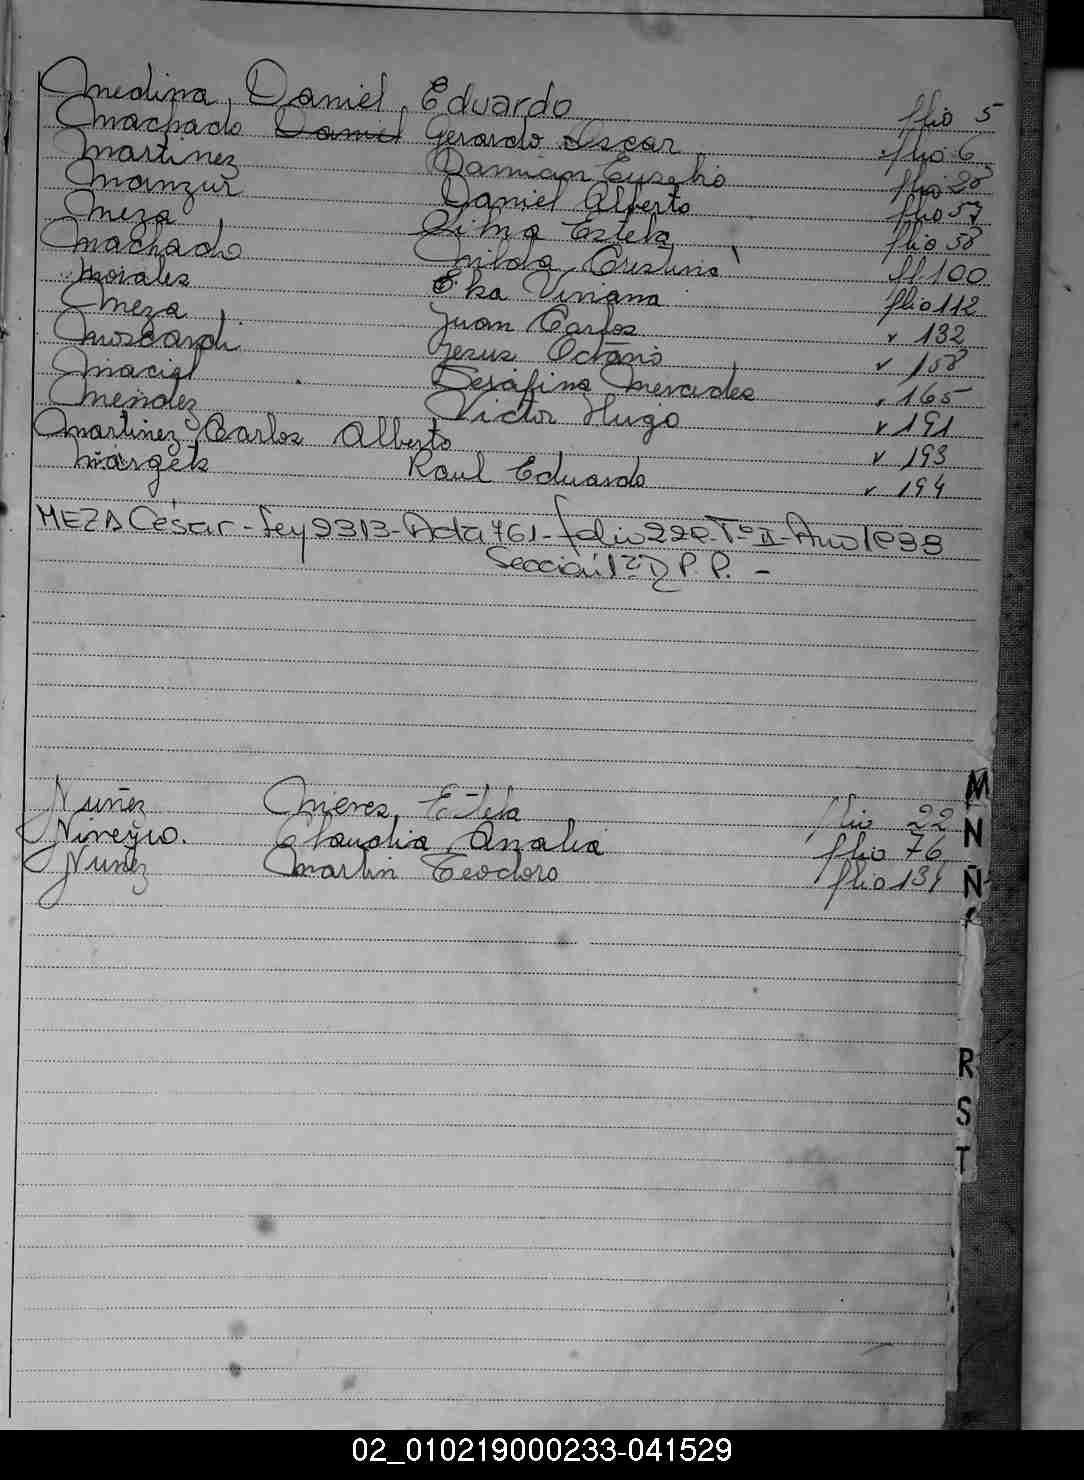 Medina, Daniel Eduardo flio 5
Machado Daniel Gerardo Oscar flio 6
Martinez Damian Eusebio flio 28
Manzur Daniel Alberto flio 57
Meza Silma Estela flio 58
Machado Nilda Cristina fl. 100
Morales Elsa Viviana flio 112
Meza Juan Carlos v 132
Moscardi Jesus Octavio v 158
Maciel Serafina Mercedes v 165
Mendez Victor Hugo v 191
Martinez, Carlos Alberto v 193
Raul Eduardo v 194
MEZA César - Ley 2313 - Acta 761 - folio 222 - Tº II - Año 1998
Sección 1ª D P. P. -
M
Nuñez Mieres Estela flio 22
N
Claudia Analia flio 76
Nuñez Martin Teodoro flio 131
Ñ
R
S
T
02_010219000233-041529